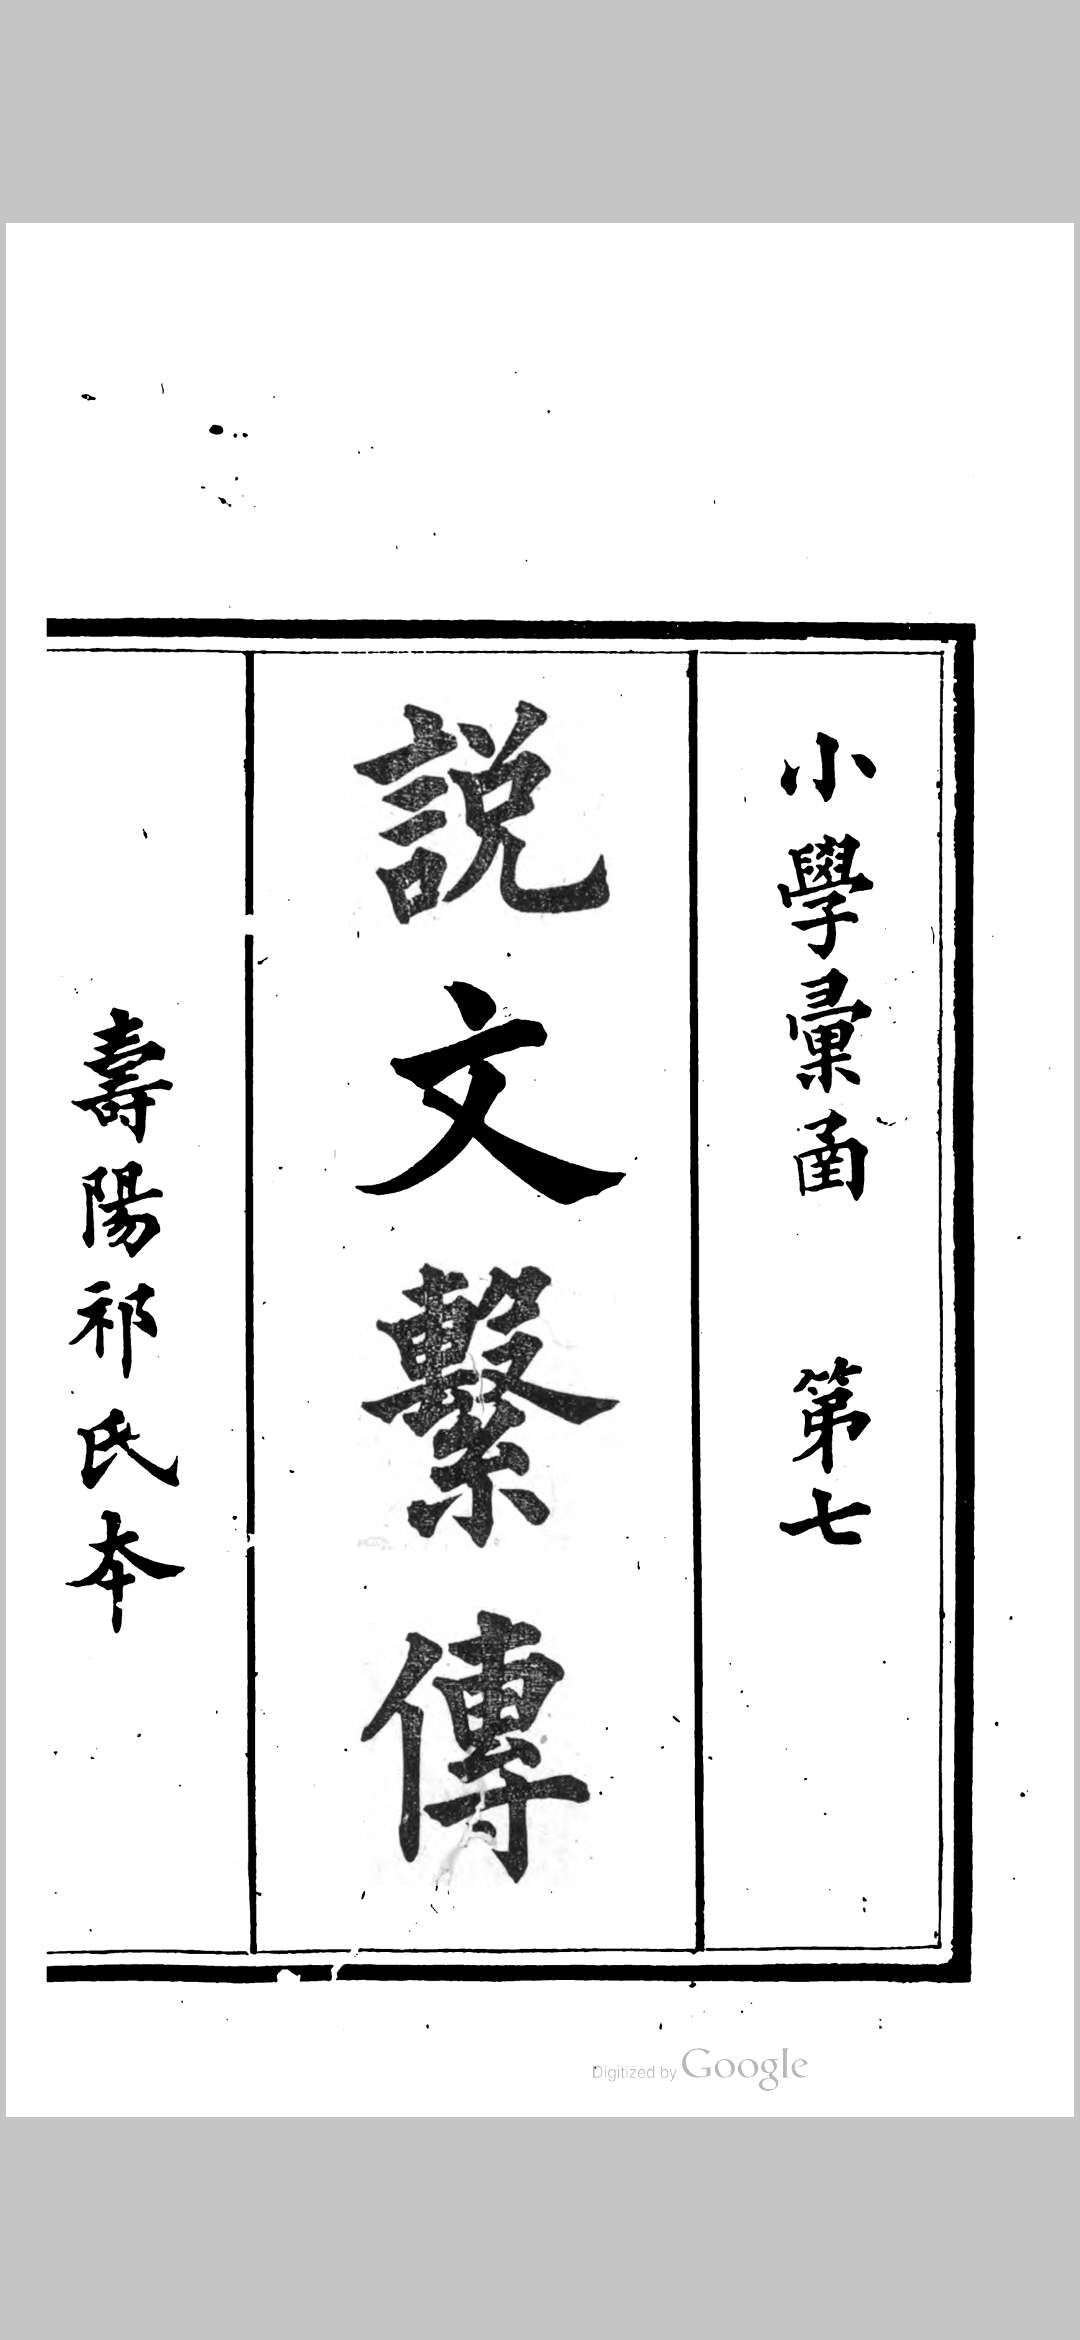 小學彙函　第七
說文繫傳
壽陽祁氏本
Digitized by Google